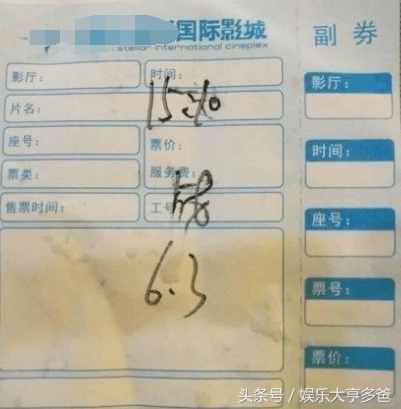 国际影城 副券
stellar international cineplex
影厅： 时间： 影厅：
片名：
座号： 票价： 时间：
票类： 服务费：
售票时间： 工号 座号：
票号：
票价：
6.3
头条号／娱乐大亨多爸